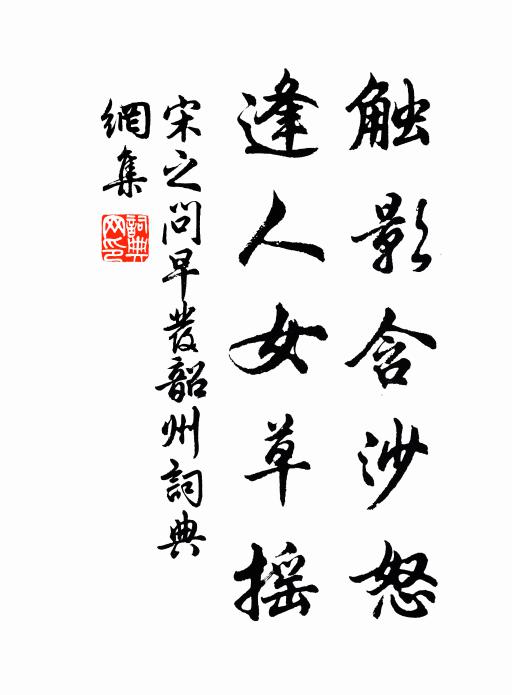 触影含沙怒
逢人女草摇
宋之问早发韶州詞典
網集
詞典
网印